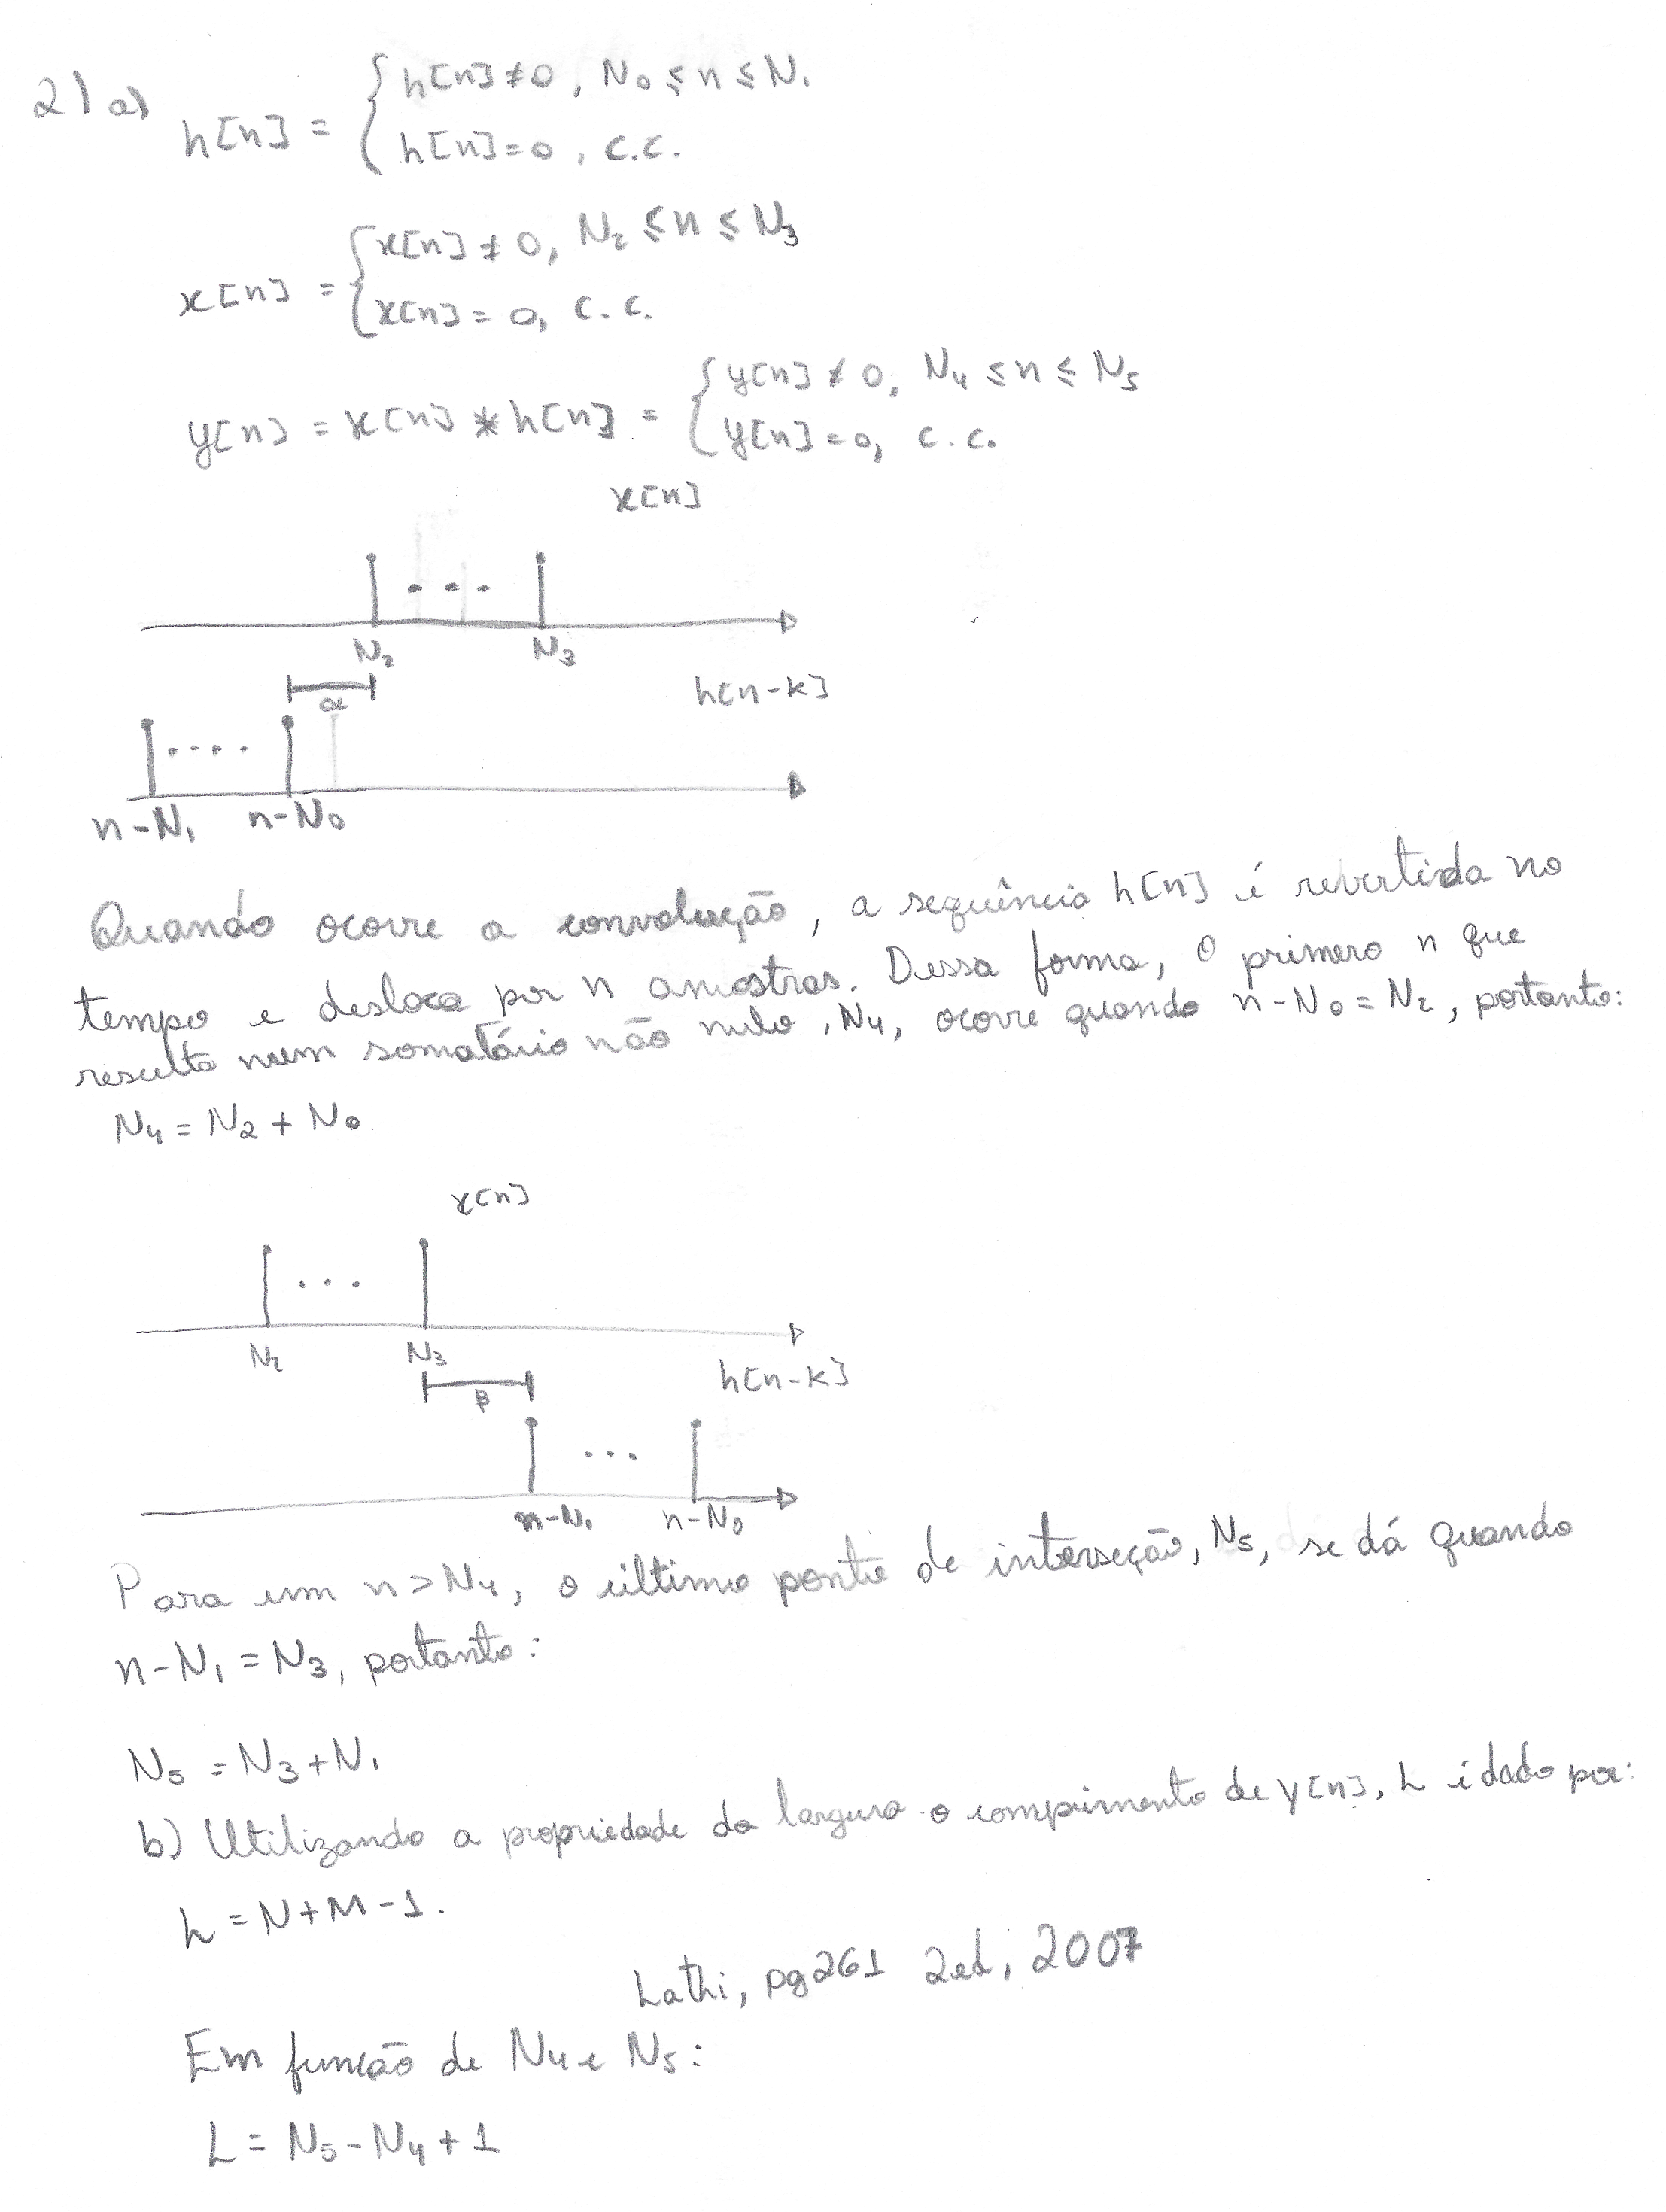 2) a) h[n] = { h[n] ≠ 0, N₀ ≤ n ≤ N₁
h[n] = 0, c.c.
x[n] = { x[n] ≠ 0, N₂ ≤ n ≤ N₃
x[n] = 0, c.c.
y[n] = x[n] * h[n] = { y[n] ≠ 0, N₄ ≤ n ≤ N₅
y[n] = 0, c.c.
x[n]
N₂ N₃
α
h[n-k]
n-N₁ n-N₀
Quando ocorre a convolução, a sequência h[n] é revertida no
tempo e desloca por n amostras. Dessa forma, o primero n que
resulta num somatório não nulo, N₄, ocorre quando n-N₀ = N₂, portanto:
N₄ = N₂ + N₀
x[n]
N₂ N₃
β
h[n-k]
n-N₁ n-N₀
Para um n > N₄, o último ponto de interseção, N₅, se dá quando
n-N₁ = N₃, portanto:
N₅ = N₃ + N₁
b) Utilizando a propriedade da largura o comprimento de y[n], L é dado por:
L = N+M-1.
Lathi, pg 261 2ed, 2007
Em função de N₄ e N₅:
L = N₅ - N₄ + 1